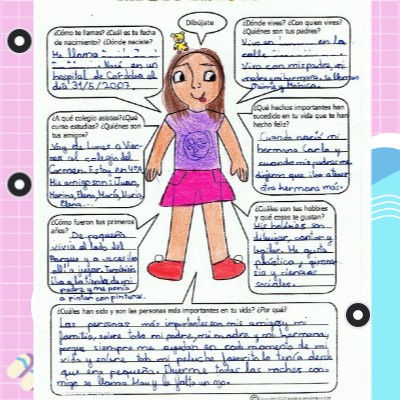 Dibújate
¿Cómo te llamas? ¿Cuál es tu fecha
de nacimiento? ¿Dónde naciste?
Me llamo
Nací en un
hospital de Cordoba el
día 31/5/2007.
¿Dónde vives? ¿Con quien vives?
¿Quiénes son tus padres?
Vivo en en la
calle
Vivo con mis padres, mi
hermana. Se llaman
Jaime y Mónica.
¿A qué colegio asistes? ¿Qué
curso estudias? ¿Quiénes son
tus amigos?
Voy de lunes a Vier-
nes al colegio del
Carmen. Estoy en 4ºA
Mis amigos son: Juan,
Marina, Elena, María, María
Elena...
¿Qué hechos importantes han
sucedido en tu vida que te han
hecho feliz?
Cuando nació mi
hermana Carla y
cuando mis padres me
dijeron que iba a tener
otra hermana más.
¿Cómo fueron tus primeros
años?
De pequeña
vivía al lado del
Parque y a veces iba
allí a jugar. También
iba a la tienda de mi
padre y me ponía
a pintar con pinturas.
¿Cuáles son tus hobbies
y qué cosas te gustan?
Mis hobbies son
dibujar, cantar y
bailar. Me gusta
plástica, gimna-
sia y ciencias
sociales.
¿Cuáles han sido y son las personas más importantes en tu vida? ¿Por qué?
Las personas más importantes son mis amigas y mi
familia, sobre todo mi padre, mi madre y mi hermana,
porque siempre me ayudan en cada momento de mi
vida y sobre todo mi peluche favorito lo tenía desde
que era pequeña. Duerme todas las noches con-
migo se llama Mau y le falta un ojo.